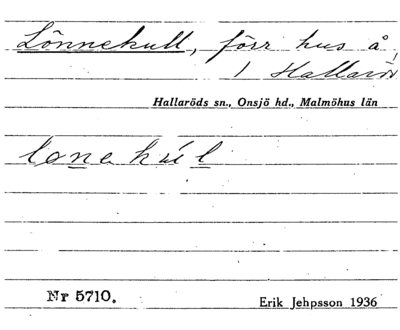 Lönnekull, förr hus å
1 Hallaröd
Hallaröds sn., Onsjö hd., Malmöhus län
lonekúl
Nr 5710.
Erik Jehpsson 1936